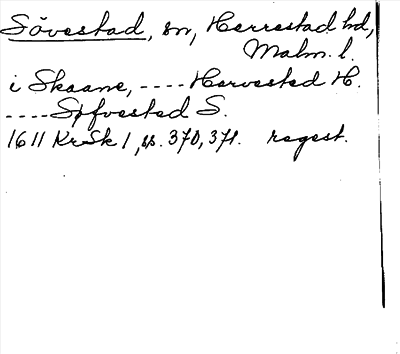 Sövestad, sn, Herrestad hd,
Malm. l.
i Skaane, ---- Hervested H.
---- Søfvested S.
1611 KrSk 1, ss. 370, 371. regest.